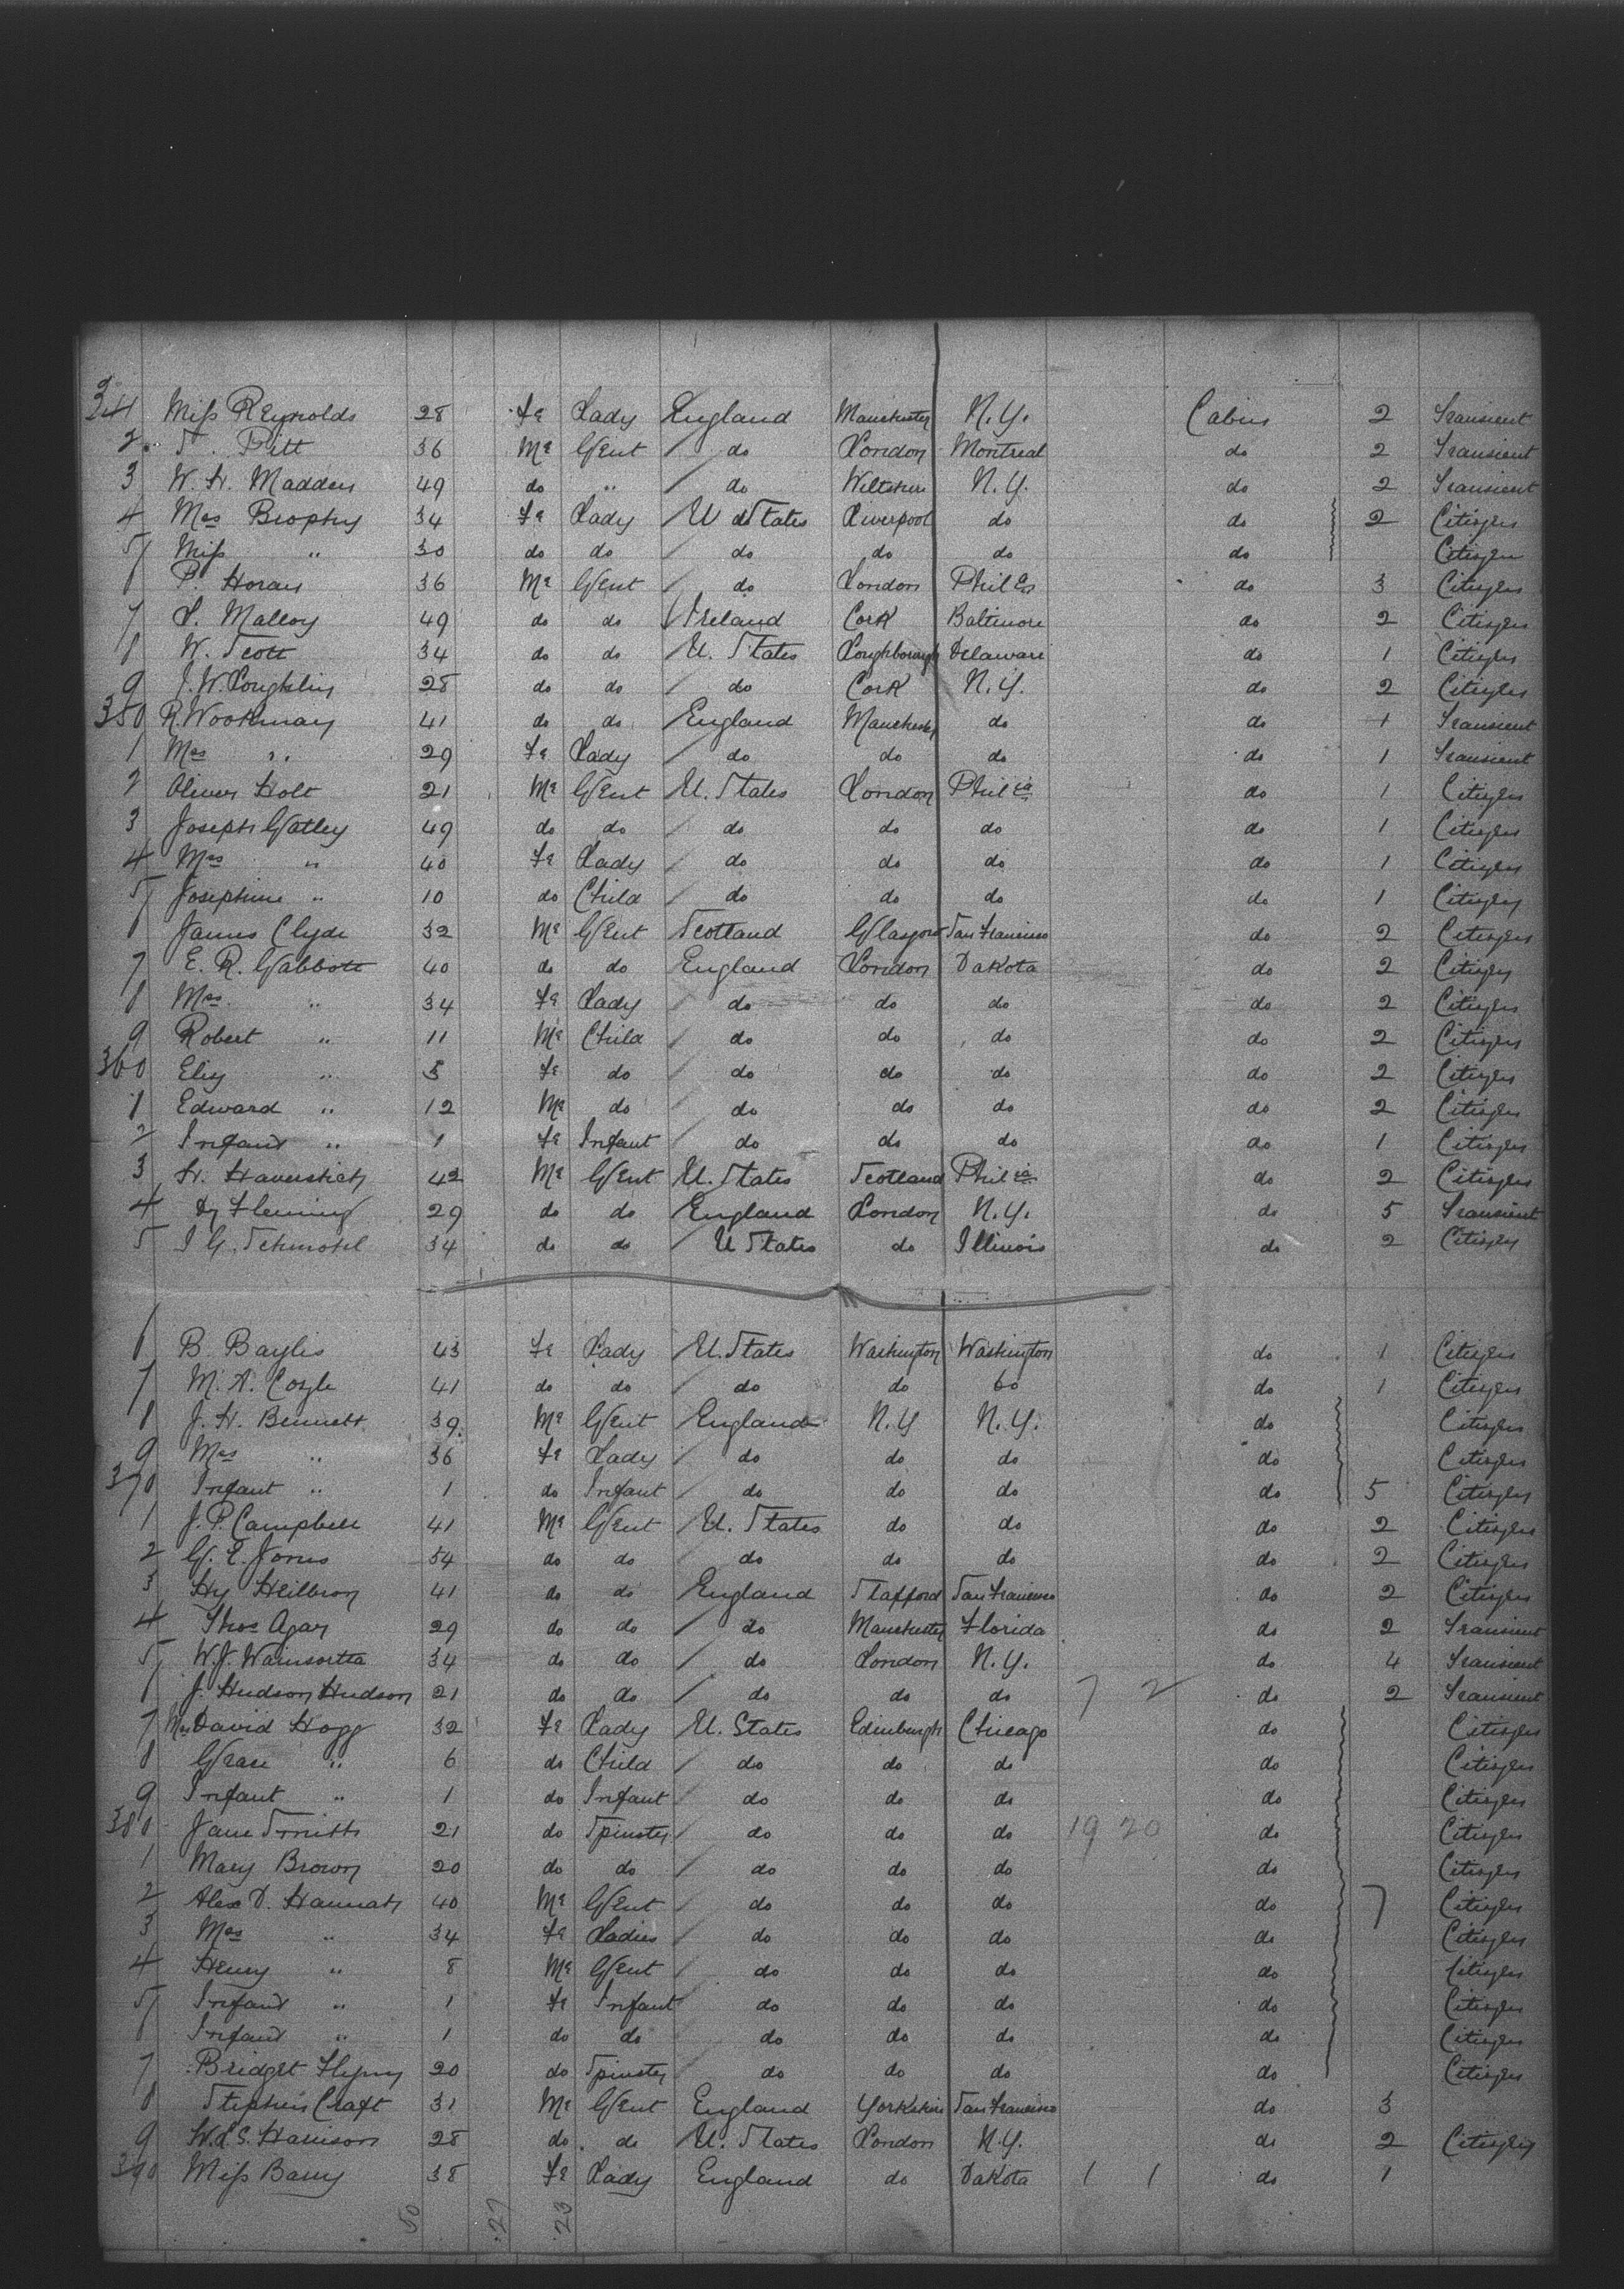 341 Miss Reynolds 28 Fe Lady England Manchester N.Y. Cabin 2 Transient
2 T. Pitt 36 Me Gent do London Montreal do 2 Transient
3 W. H. Madden 49 do " do Wiltshire N.Y. do 2 Transient
4 Mrs Brophy 34 Fe Lady U States Liverpool do do 2 Citizen
5 Miss " 30 do do do do do do Citizen
6 P. Horan 36 Me Gent do London Phil do 3 Citizen
7 L. Malloy 49 do do Ireland Cork Baltimore do 2 Citizen
8 W. Scott 34 do do U. States Loughborough Delaware do 1 Citizen
9 J. W. Coughlin 28 do do do Cork N.Y. do 2 Citizen
350 R. Workman 41 do do England Manchester do do 1 Transient
1 Mrs " 29 Fe Lady do do do do 1 Transient
2 Oliver Holt 21 Me Gent U. States London Phil ia do 1 Citizen
3 Joseph Gatley 49 do do do do do do 1 Citizen
4 Mrs " 40 Fe Lady do do do do 1 Citizen
5 Josephine " 10 do Child do do do do 1 Citizen
6 James Clyde 32 Me Gent Scotland Glasgow San Francisco do 2 Citizen
7 E. R. Gabbott 40 do do England London Dakota do 2 Citizen
8 Mrs " 34 Fe Lady do do do do 2 Citizen
9 Robert " 11 Me Child do do do do 2 Citizen
360 Eliz " 5 Fe do do do do do 2 Citizen
1 Edward " 12 Me do do do do do 2 Citizen
2 Infant " 1 Fe Infant do do do do 1 Citizen
3 H. Haverstick 42 Me Gent U. States Scotland Phil ia do 2 Citizen
4 Hy Fleming 29 do do England London N.Y. do 5 Transient
5 34 do do U States do Illinois do 2 Citizen
6 B. Baylis 43 Fe Lady U. States Washington Washington do 1 Citizen
7 M. A. Coyle 41 do do do do do do 1 Citizen
8 J. H. Bennett 39 Me Gent England N.Y N.Y. do Citizen
9 Mrs " 36 Fe Lady do do do do Citizen
370 Infant " 1 do Infant do do do do 5 Citizen
1 J. P. Campbell 41 Me Gent U. States do do do 2 Citizen
2 G. E. Jones 54 do do do do do do 2 Citizen
3 Hy Heilbron 41 do do England Stafford San Francisco do 2 Citizen
4 Thos Agar 29 do do do Manchester Florida do 2 Transient
5 W. J. 34 do do do London N.Y. do 4 Transient
6 J. Hudson Hudson 21 do do do do do 7 2 do 2 Transient
7 Mrs David Hogg 32 Fe Lady U. States Edinburgh Chicago do Citizen
8 Grace " 6 do Child do do do do Citizen
9 Infant " 1 do Infant do do do do Citizen
380 Jane Smith 21 do Spinster do do do 19 20 do Citizen
1 Mary Brown 20 do do do do do do Citizen
2 Alex D. Hannah 40 Me Gent do do do do 7 Citizen
3 Mrs " 34 Fe Ladies do do do do Citizen
4 Henry " 8 Me Gent do do do do Citizen
5 Infant " 1 Fe Infant do do do do Citizen
6 Infant " 1 do do do do do do Citizen
7 Bridget Flynn 20 do Spinster do do do do Citizen
8 Stephen Craft 31 Me Gent England Yorkshire San Francisco do 3
9 W. L. S. Harrison 28 do do U. States London N.Y. do 2 Citizen
390 Miss Barry 38 Fe Lady England do Dakota 1 1 do 1
50 27 23